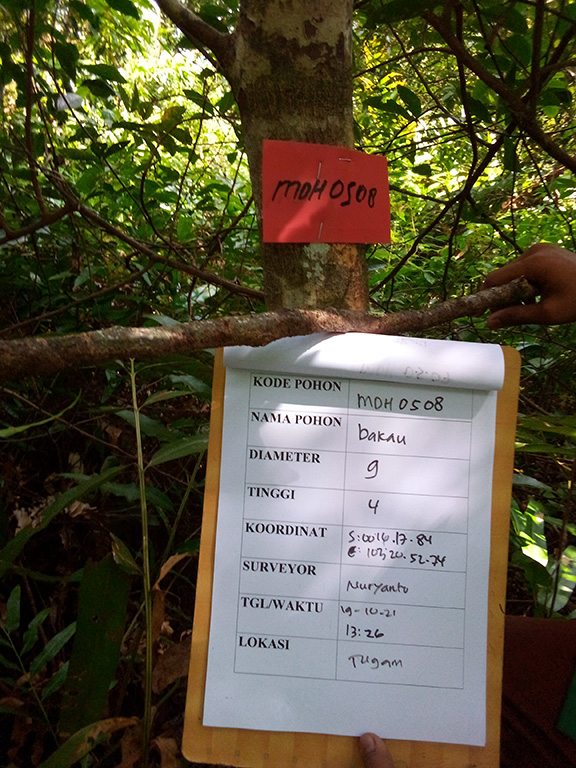 MDH0508
KODE POHON MDH0508
NAMA POHON bakau
DIAMETER 9
TINGGI 4
KOORDINAT S:0016.17.84
E: 102;20.52.74
SURVEYOR Nuryanto
TGL/WAKTU 19-10-21
13:26
LOKASI Tugam